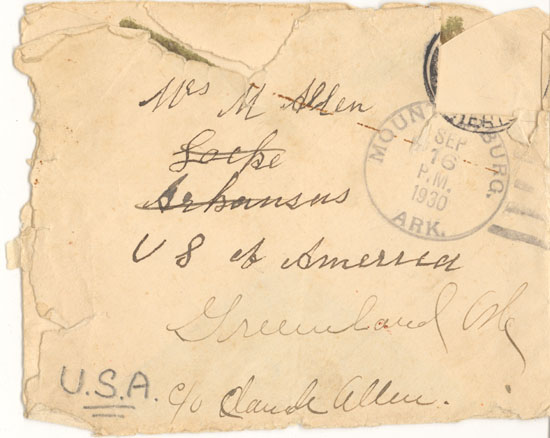 Mrs M Allen
Locke
Arkansas
U S of America
Greenland Ark
U.S.A. c/o Claude Allen.
MOUNTAINBURG,
SEP
16
P.M.
1930
ARK.